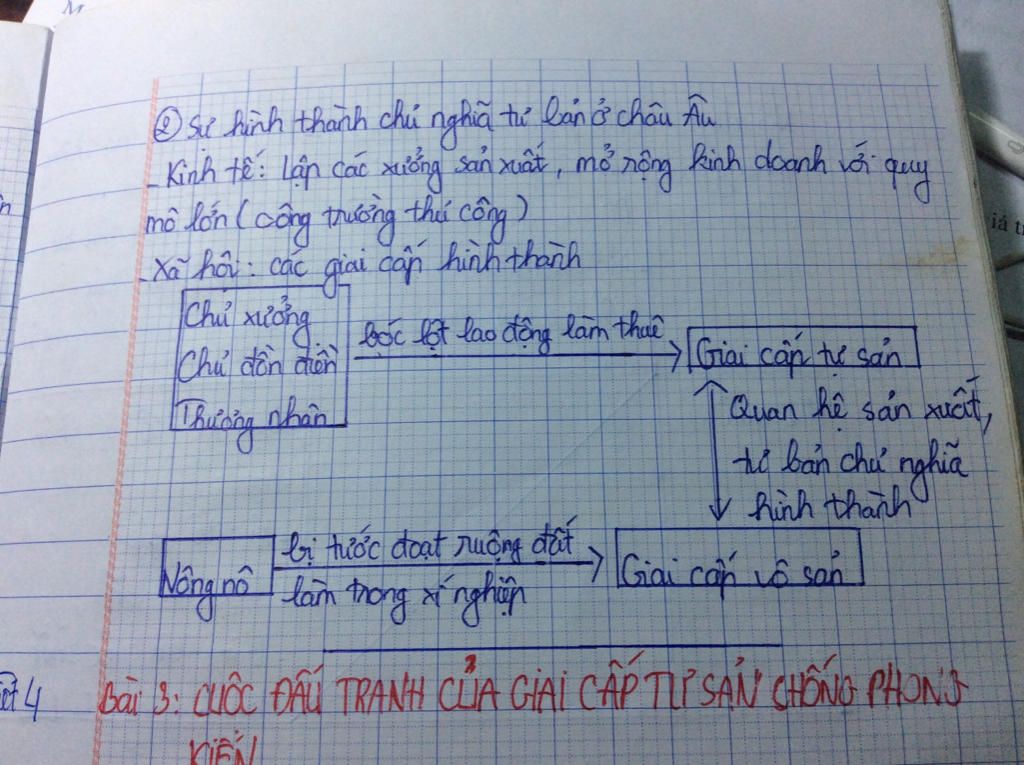 ② Sự hình thành chủ nghĩa tư bản ở châu Âu
- Kinh tế: lập các xưởng sản xuất, mở rộng kinh doanh với quy
mô lớn (công trường thủ công)
- Xã hội: các giai cấp hình thành
Chủ xưởng
Chủ đồn điền
Thương nhân
bóc lột lao động làm thuê
Giai cấp tư sản
Quan hệ sản xuất,
tư bản chủ nghĩa
hình thành
Nông nô
bị tước đoạt ruộng đất
làm trong xí nghiệp
Giai cấp vô sản
Bài 3: CUỘC ĐẤU TRANH CỦA GIAI CẤP TƯ SẢN CHỐNG PHONG
KIẾN